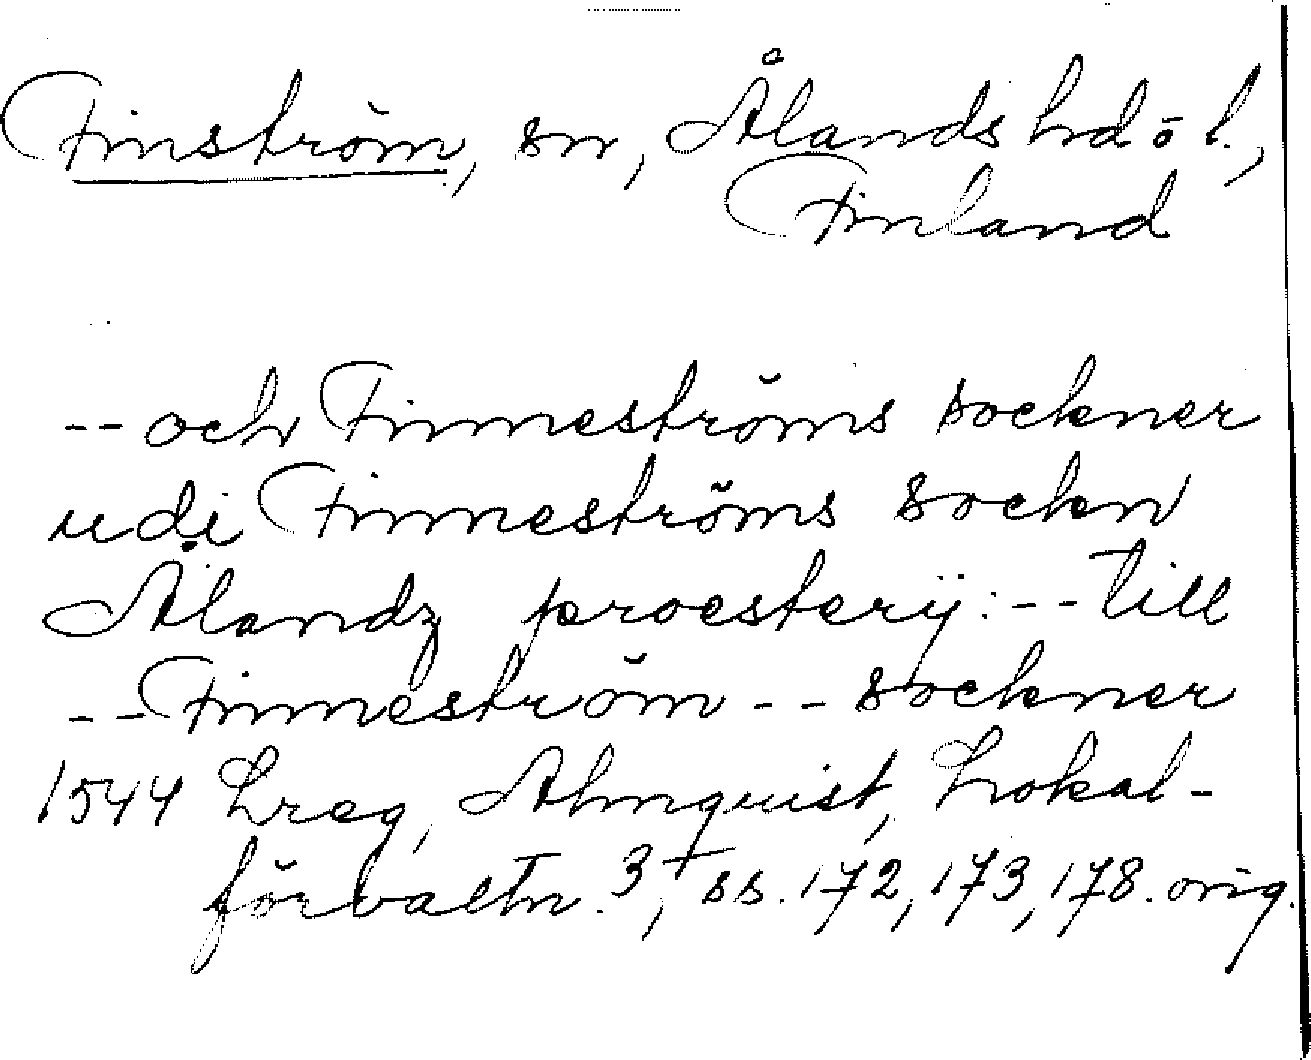 Finström, sn, Ålands hd o l.,
Finland
-- och Finneströms sockner
udi Finneströms sockn
Ålandz proesterij: -- till
-- Finneström -- sockner
1544 Lreg, Almquist, Lokal-
förvaltn. 3, ss. 172, 173, 178. orig.